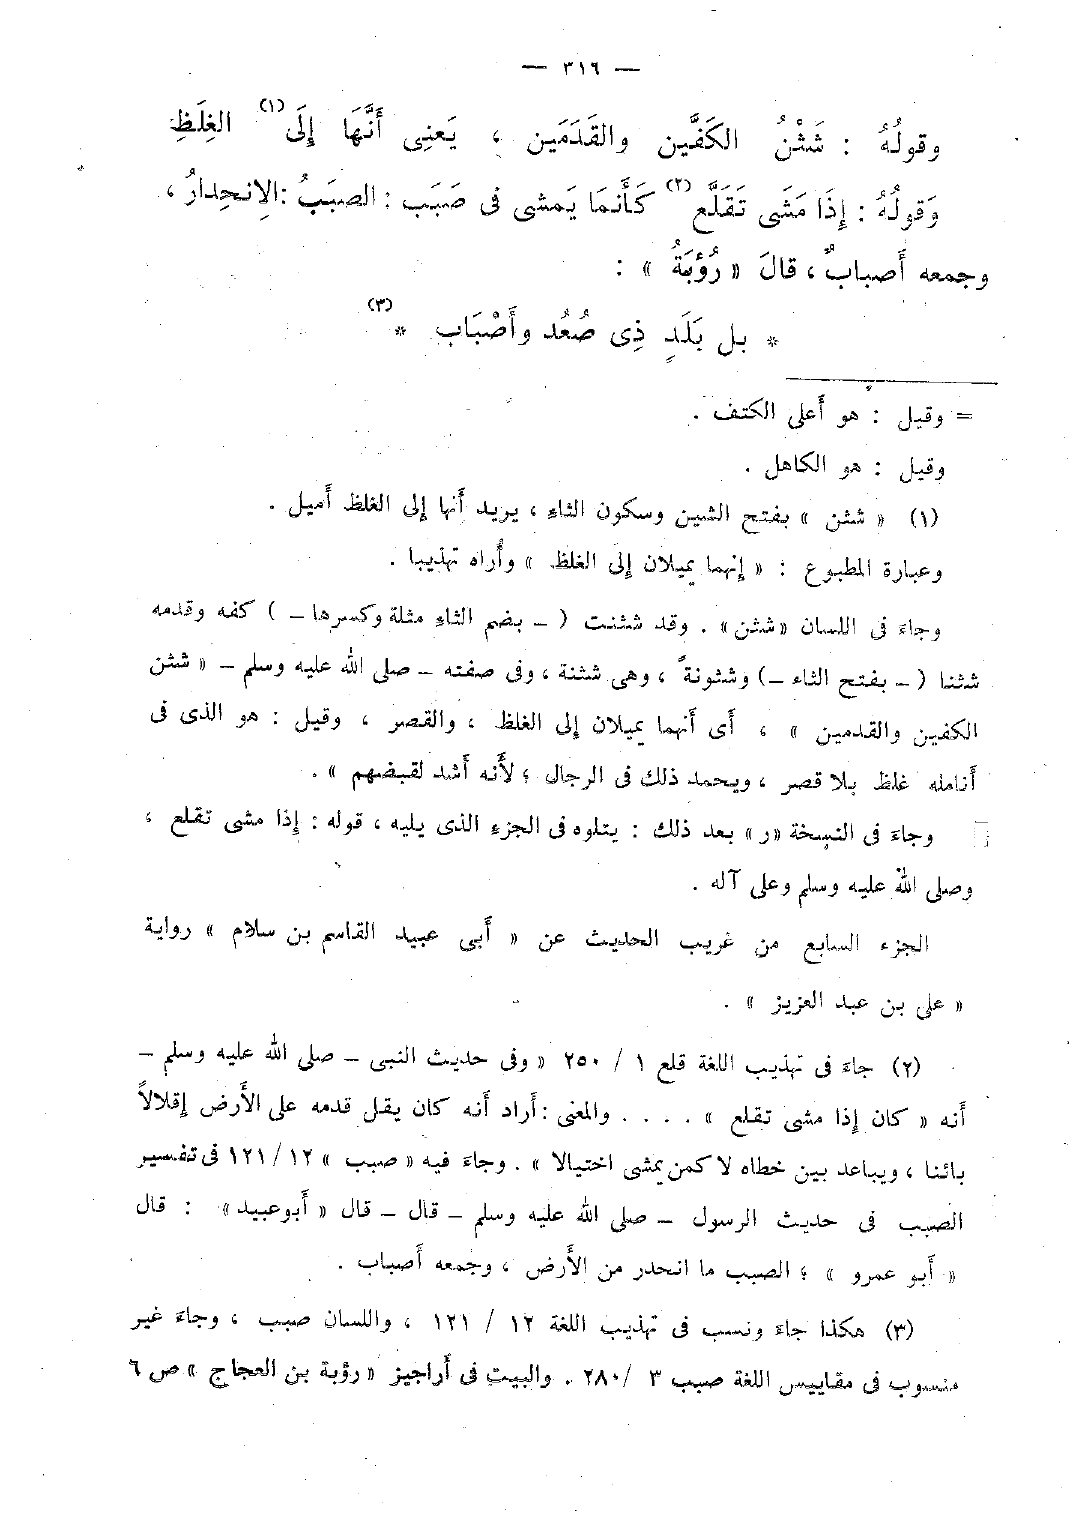 — ٣١٦ —
وقولُهُ : شَثْنُ الكَفَّين والقَدَمَين ، يَعنِى أَنَّهَا إِلَى (١) الغِلَظِ
وَقولُهُ : إِذَا مَشَى تَقَلَّع (٢) كَأَنمَا يَمشى فى صَبَب : الصبَبُ : الِانحِدارُ ،
وجمعه أَصبابٌ ، قالَ « رُؤبَةُ » :
* بل بَلَدٍ ذِى صُعُد وأَصْبَاب * (٣)
= وقيل : هو أَعلى الكتف .
وقيل : هو الكاهل .
(١) « شثن » بفتح الشين وسكون الثاءِ ، يريد أَنها إلى الغلظ أَميل .
وعبارة المطبوع : « إنهما يميلان إلى الغلظ » وأُراه تهذيبا .
وجاءَ فى اللسان «شثن» . وقد شثنت ( – بضم الثاءِ مثلة وكسرها – ) كفه وقدمه
شثنا ( – بفتح الثاء –) وشثونةً ، وهى شثنة ، وفى صفته – صلى الله عليه وسلم – « شثن
الكفين والقدمين » ، أَى أَنهما يميلان إلى الغلظ ، والقصر ، وقيل : هو الذى فى
أَنامله غلظ بلا قصر ، ويحمد ذلك فى الرجال ؛ لأَنه أَشد لقبضهم » .
وجاءَ فى النسخة «ر» بعد ذلك : يتلوه فى الجزءِ الذى يليه ، قوله : إِذا مشى تقلع ،
وصلى الله عليه وسلم وعلى آله .
الجزء السابع من غريب الحديث عن « أَبى عبيد القاسم بن سلام » رواية
« على بن عبد العزيز » .
(٢) جاءَ فى تهذيب اللغة قلع ١ / ٢٥٠ « وفى حديث النبى – صلى الله عليه وسلم –
أَنه « كان إِذا مشى تقلع » . . . . والمعنى : أَراد أَنه كان يقل قدمه على الأَرض إقلالاً
بائنا ، ويباعد بين خطاه لا كمن يمشى اختيالا » . وجاءَ فيه « صبب » ١٢ /١٢١ فى تفسير
الصبب فى حديث الرسول – صلى الله عليه وسلم – قال – قال « أَبوعبيد» : قال
« أَبو عمرو » ؛ الصبب ما انحدر من الأَرض ، وجمعه أَصباب .
(٣) هكذا جاءَ ونسب فى تهذيب اللغة ١٢ / ١٢١ ، واللسان صبب ، وجاءَ غير
منسوب فى مقاييس اللغة صبب ٣ /٢٨٠ . والبيت فى أَراجيز « رؤبة بن العجاج » ص ٦